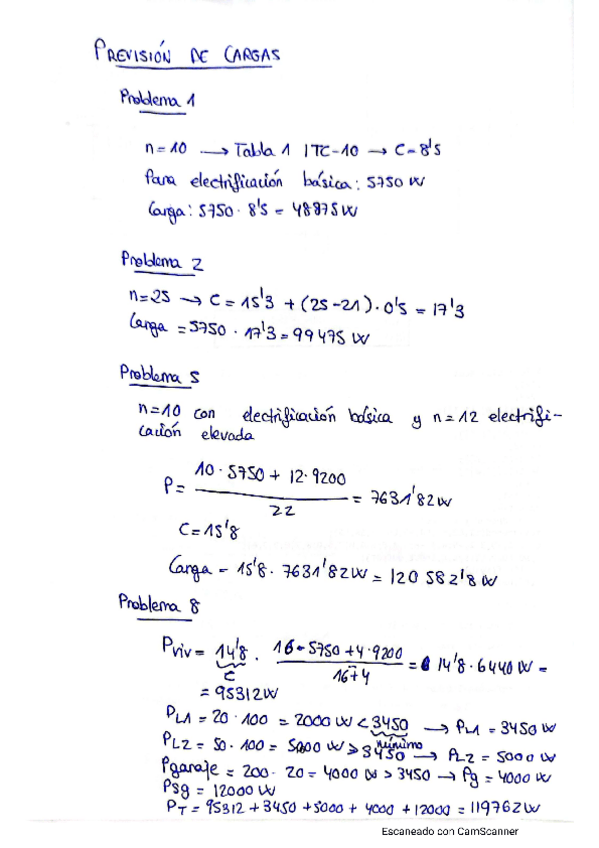 PREVISIÓN DE CARGAS
Problema 1
n=10 → Tabla 1 ITC-10 → C=8's
Para electrificación básica: 5750 W
Carga: 5750 · 8'5 = 48875 W
Problema 2
n=25 → C = 15'3 + (25-21) · 0'5 = 17'3
Carga = 5750 · 17'3 = 99475 W
Problema 5
n=10 con electrificación básica y n=12 electrifi-
cación elevada
P = (10 · 5750 + 12 · 9200) / 22 = 7631'82 W
C = 15'8
Carga = 15'8 · 7631'82 W = 120 582'8 W
Problema 8
Pviv = 14'8 · (16 · 5750 + 4 · 9200) / (16+4) = 14'8 · 6440 W =
C
= 95312 W
PL1 = 20 · 100 = 2000 W < 3450 → PL1 = 3450 W
mínimo
PL2 = 50 · 100 = 5000 W > 3450 → PL2 = 5000 W
Pgaraje = 200 · 20 = 4000 W > 3450 → Pg = 4000 W
Psg = 12000 W
PT = 95312 + 3450 + 5000 + 4000 + 12000 = 119762 W
Escaneado con CamScanner